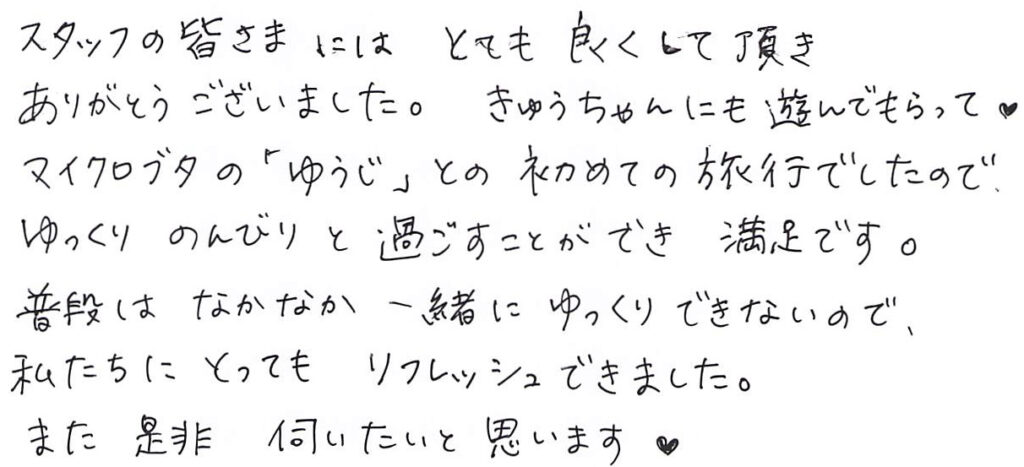 スタッフの皆さまには とても良くして頂き
ありがとうございました。 きゅうちゃんにも遊んでもらって♥
マイクロブタの「ゆうじ」との初めての旅行でしたので、
ゆっくり のんびりと過ごすことができ 満足です。
普段は なかなか 一緒に ゆっくりできないので、
私たちに とっても リフレッシュできました。
また 是非 伺いたいと思います♥